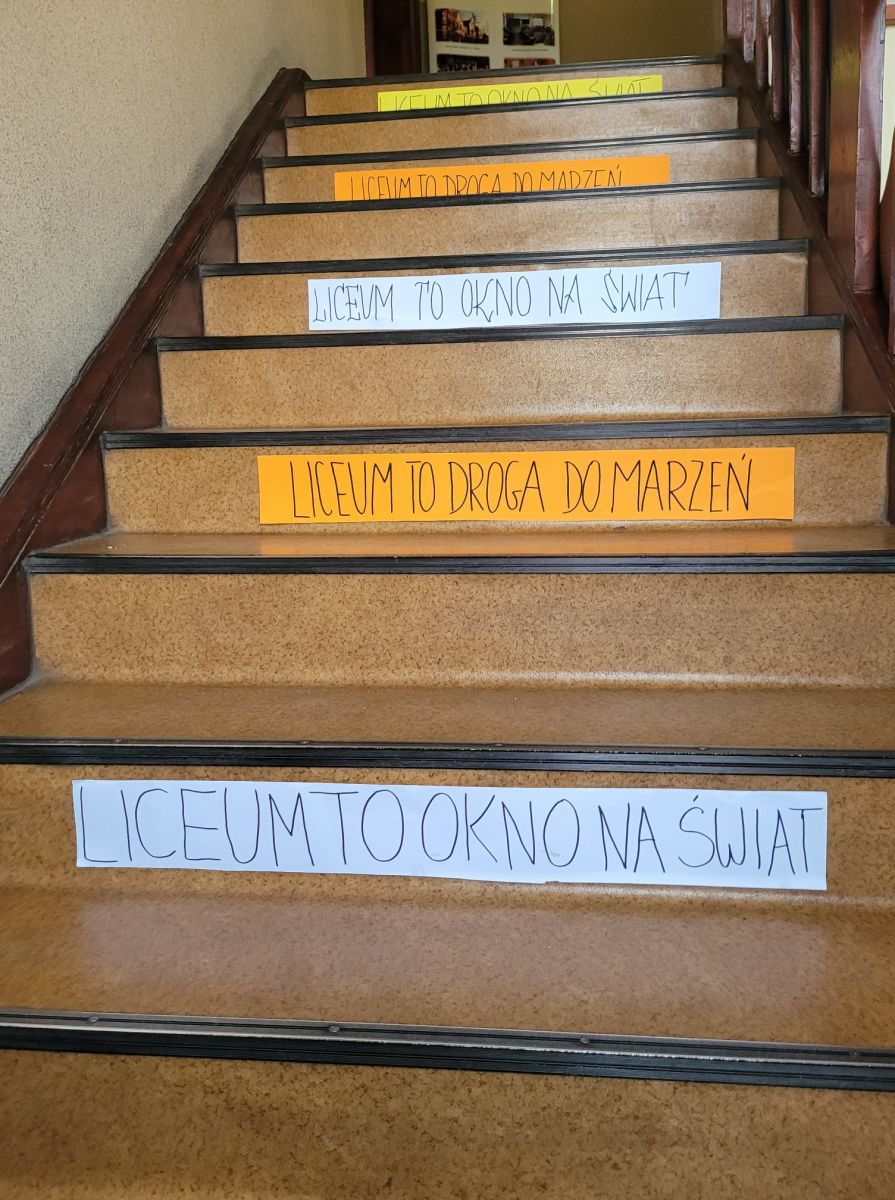 LICEUM TO OKNO NA ŚWIAT
LICEUM TO DROGA DO MARZEŃ
LICEUM TO OKNO NA ŚWIAT
LICEUM TO DROGA DO MARZEŃ
LICEUM TO OKNO NA ŚWIAT